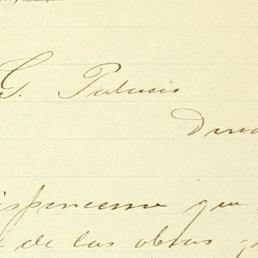 G. Palacio
Dura
ispenseme que
de las obras q